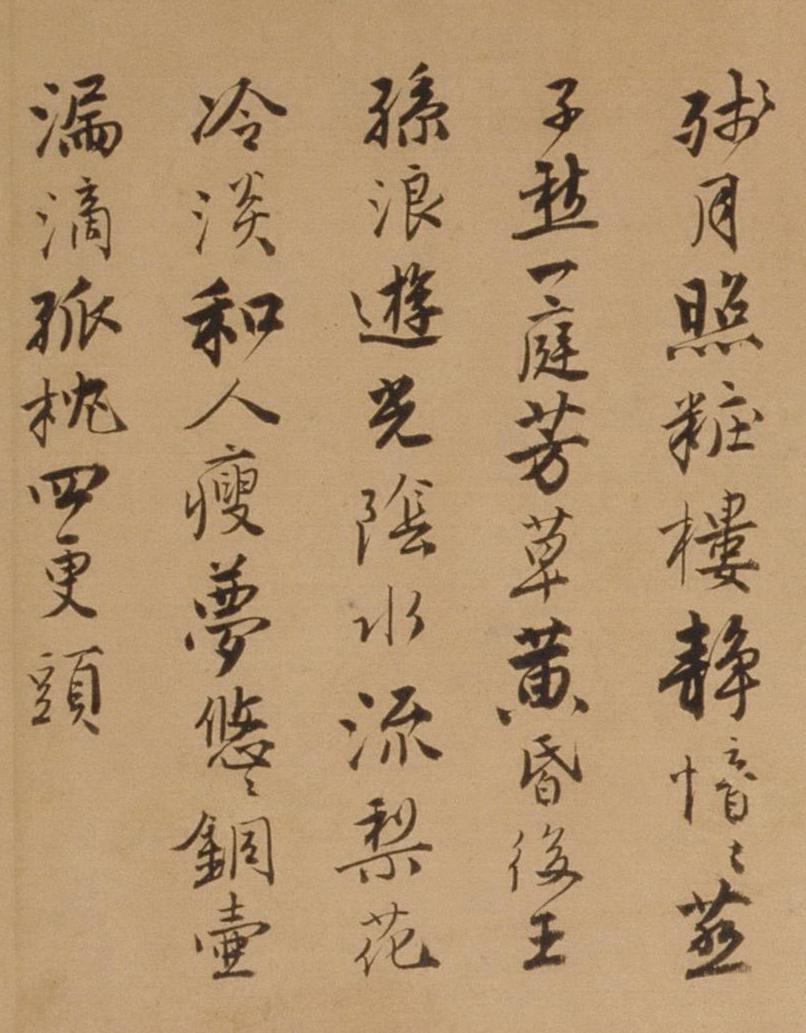 残月照粧樓靜愔〻燕
子愁一庭芳草黄昏後王
孫浪遊光陰水流梨花
冷淡和人瘦夢悠〻銅壺
漏滴孤枕四更頭